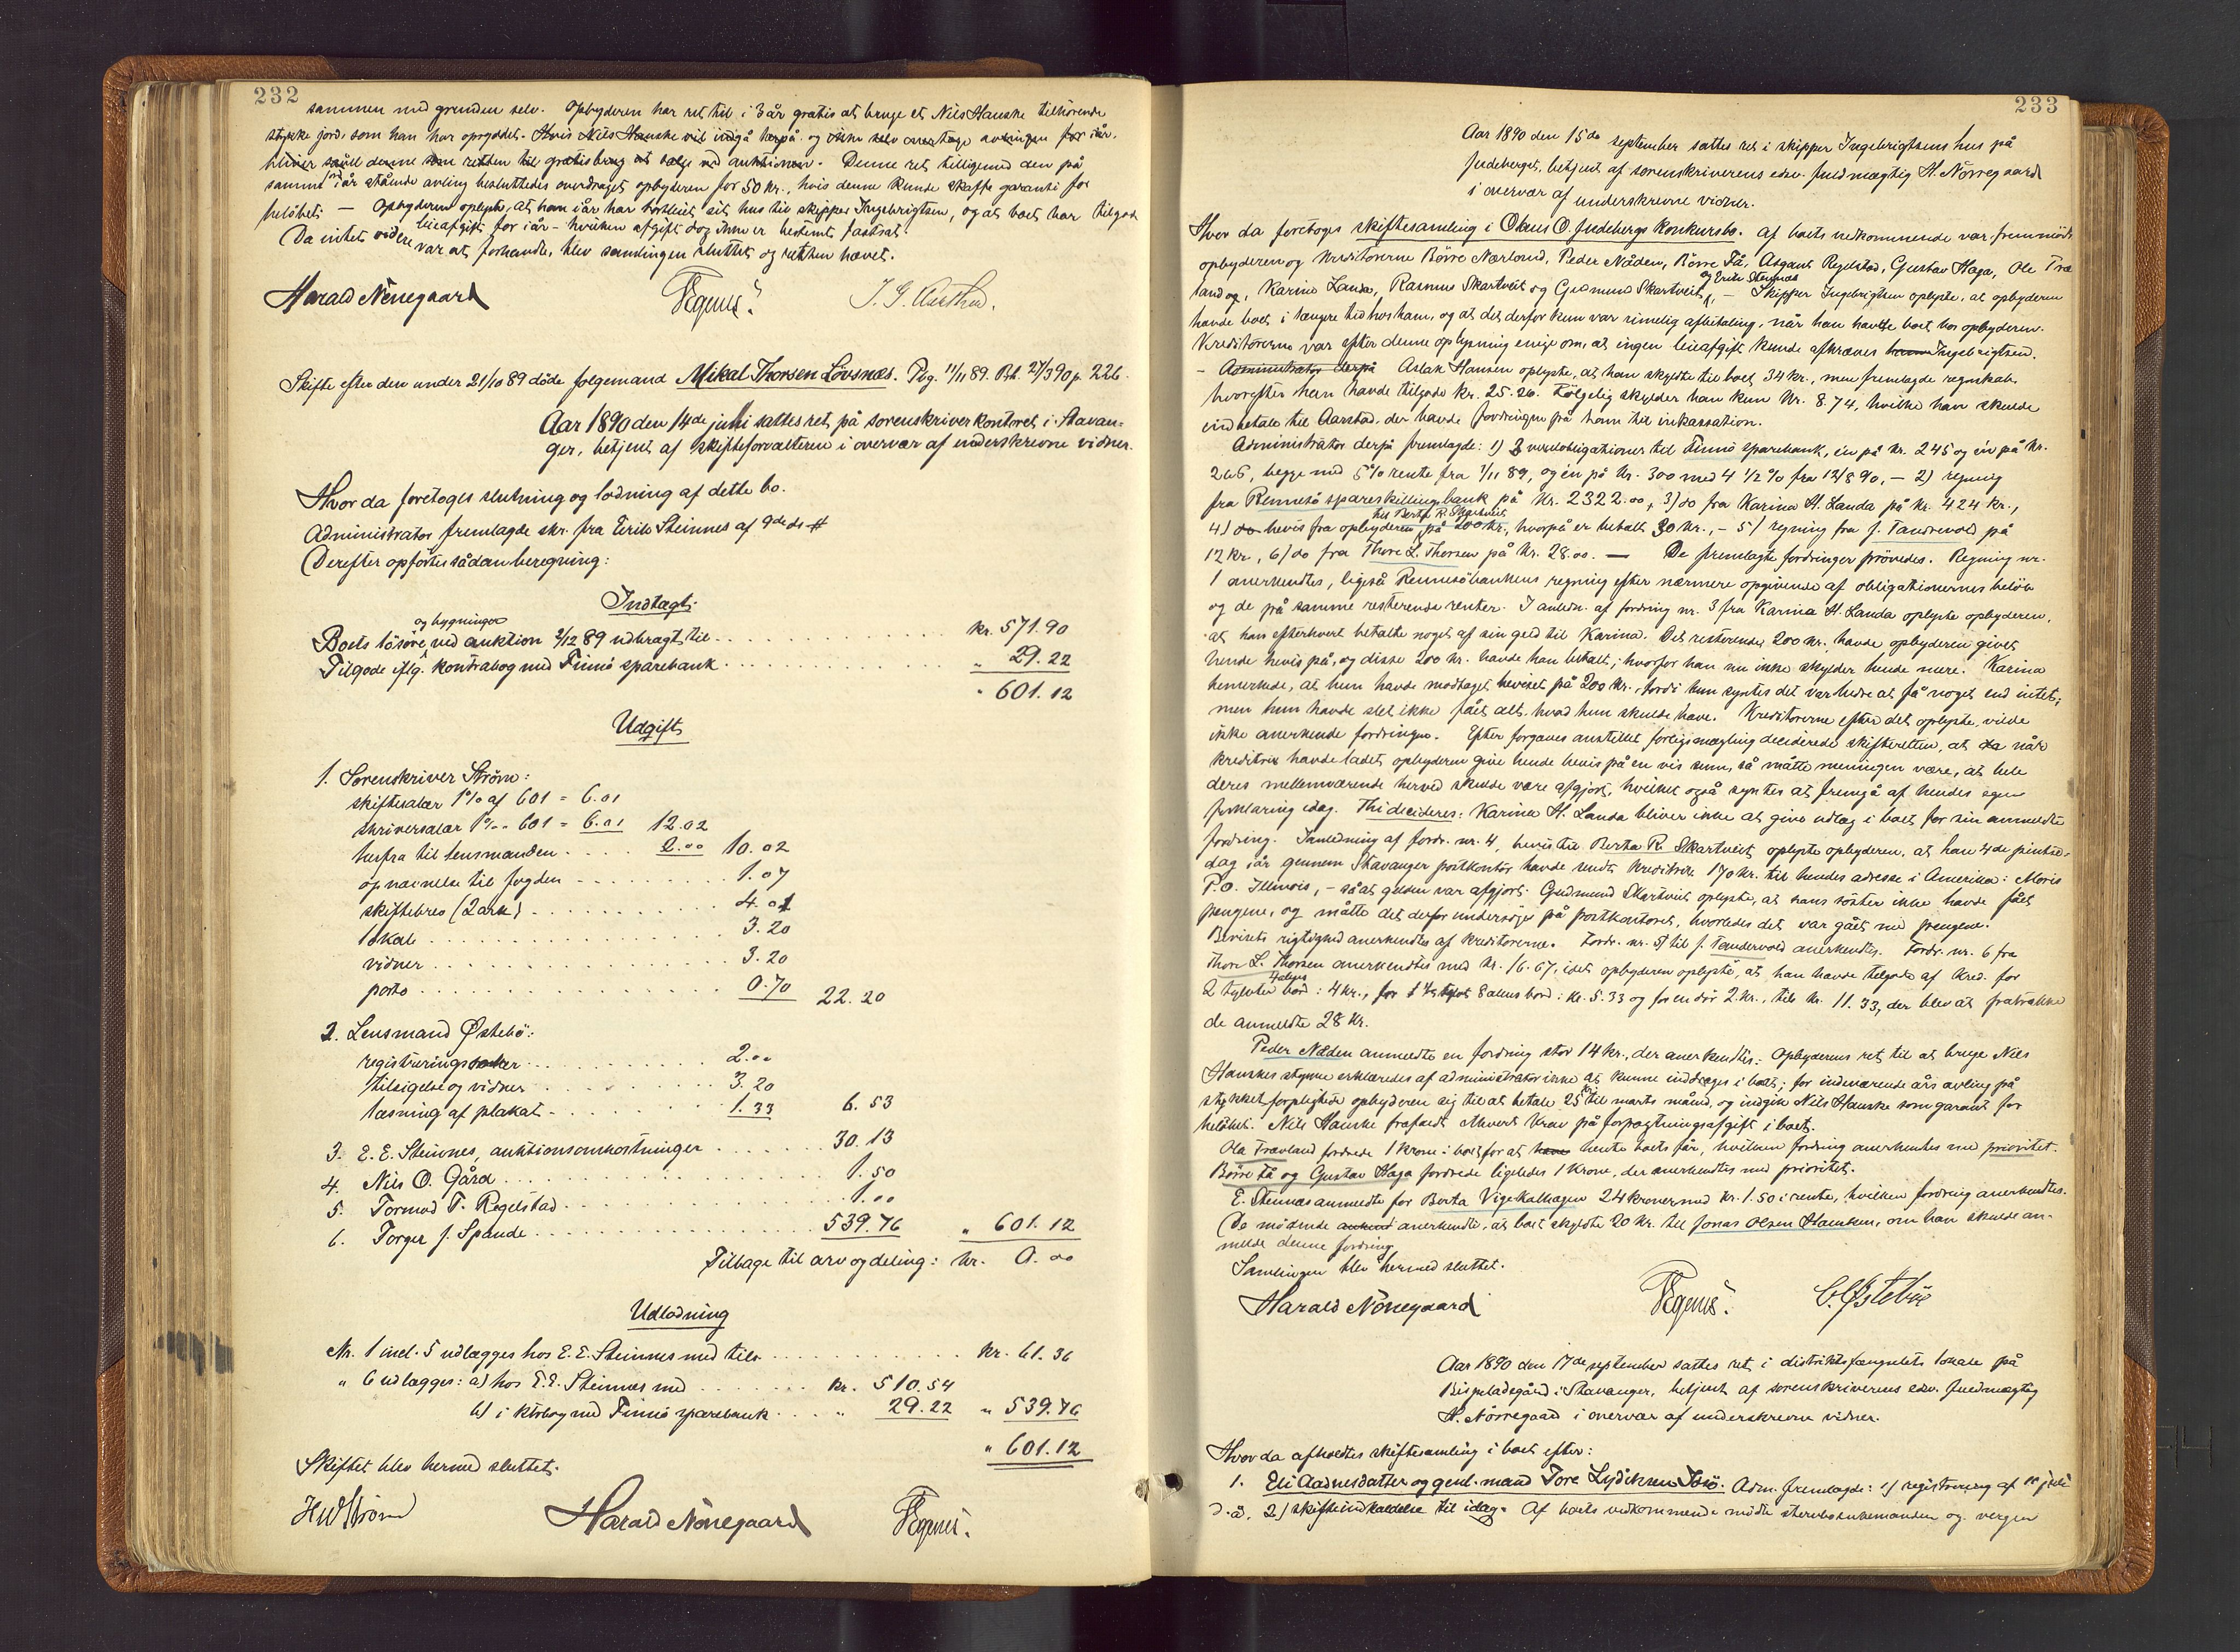 232
sammen med grunden selv. Opbyderen har ret til i 3 år gratis at bruge et Nils Hauske tilhörende
stykke jord, som han har opryddet. Hvis Nils Hauske vil indgå herpå og ikke selv overtage avlingen for iår,
bliver såvel denne som retten til gratis brug at sælge ved auktionen. Denne ret tilligemed den på
samme nu iår stående avling besluttedes overdraget opbyderen for 50 kr., hvis denne kunde skaffe garanti for
belöbet. — Opbyderen oplyste, at han iår har bortleiet sit hus til skipper Ingebrigtsen, og at boet har tilgode
leieafgift for iår – hvilken afgift dog ikke er bestemt fastsat.
Da intet videre var at forhandle, blev samlingen sluttet og retten hævet.
Harald Nörregaard
Skifte efter den under 21/10 89 döde følgemand Mikal Thorsen Lövsnæs. Pbg. 11/11 89. Bh. 27/3 90 p. 226.
Aar 1890 den 14de juli sattes ret på sorenskriverkontoret i Stavan-
ger, betjent af skifteforvalteren i overvær af underskrevne vidner.
Hvor da foretoges slutning og lodning af dette bo.
Administrator fremlagde skr. fra Eirik Steinnes af 9de ds #
Derefter opförtes sådan beregning:
Indtægt:
og bygninger
Boets lösöre ved auktion 2/12 89 udbragt til . . . kr. 571.90
Tilgode iflg. kontrabog med Finnö sparebank . . . " 29.22
" 601.12
Udgift
1. Sorenskriver Ström:
skiftesalær 1% af 601 = 6.01
skriversalær 1% - 601 = 6.01 12.02
herfra til lensmanden . . . 2.00 10.02
opnævnelse til fogden . . . 1.07
skiftebrev (2 ark) . . . 4.01
lokale . . . 3.20
vidner . . . 3.20
porto . . . 0.70 22.20
2. Lensmand Østebö:
registreringssalær . . . 2.00
tilsigelse og vidner . . . 3.20
læsning af plakat . . . 1.33 6.53
3. E. E. Steinnes, auktionsomkostninger . . . 30.13
4. Nils O. Gård . . . 1.50
5. Tormod T. Regelstad . . . 1.00
6. Torger J. Spande . . . 539.76 " 601.12
Tilbage til arv og deling: kr. 0.00
Udlodning
Nr. 1 incl. 5 udlægges hos E. E. Steinnes med tils. . . . kr. 61.36
" 6 udlægges: a) hos E. E. Steinnes med . . . kr. 510.54
b) i ktrbog med Finnö sparebank . . . " 29.22 " 539.76
" 601.12
Skiftet blev hermed sluttet.
Harald Nörregaard
233
Aar 1890 den 15de september sattes ret i skipper Ingebrigtsens hus på
Judeberget, betjent af sorenskriverens edsv. fuldmægtig H. Nörregaard
i overvær af underskrevne vidner.
Hvor da foretoges skiftesamling i Olaus O. Judebergs konkursbo. Af boets vedkommende var fremmödt
opbyderen og kreditorerne Börre Nærland, Peder Nåden, Börre Tå, Asgaut Regelstad, Gustav Haga, Ole Træ-
og Eirik Steinnes
land og, Karina Landa, Rasmus Skartveit og Gudmund Skartveit. – Skipper Ingebrigtsen oplyste, at opbyderen
havde boet i længere tid hos ham, og at det derfor kun var rimelig afbetaling, når han havde boet hos opbyderen.
Kreditorerne var efter denne oplysning enige om, at ingen leieafgift kunde afkræves Ingebrigtsen.
– Administrator derpå Aslak Hansen oplyste, at han skyldte til boet 34 kr., men fremlagde regnskab
hvorefter han havde tilgode kr. 25.26. Fölgelig skylder han kun kr. 8.74, hvilke han skulde
indbetale til Aarstad, der havde fordringen på ham til inkassation.
Administrator derpå fremlagde: 1) 3 vexelobligationer til Finnö sparebank, én på kr. 245 og én på kr.
265, begge med 5% rente fra 1/11 89, og én på kr. 300 med 4 1/2 % fra 12/8 90, – 2) regning
fra Rennesö spareskillingsbank på kr. 2322.00, 3) do fra Karina H. Landa på kr. 424 kr.,
til Berta R. Skartveit
4) do bevis fra opbyderen på 200 kr., hvorpå er betalt 30 kr., – 5) regning fra J. Tandrevold på
12 kr., 6) do fra Thore L. Thorsen på kr. 28.00. — De fremlagte fordringer prövedes. Regning nr.
1 anerkendtes, ligeså Rennesöbankens regning efter nærmere opgivende af obligationernes belöb
og de på samme resterende renter. I anledn. af fordring nr. 3 fra Karina H. Landa oplyste opbyderen,
at han efterhvert betalte noget af sin geld til Karina. Det resterende 200 kr. havde opbyderen givet
hende bevis på, og disse 200 kr. havde han betalt, hvorfor han nu ikke skylder hende mere. Karina
bemerkede, at hun havde modtaget beviset på 200 kr., fordi hun syntes det var bedre at få noget end intet;
men hun havde slet ikke fået alt, hvad hun skulde have. Kreditorerne efter det oplyste, vilde
ikke anerkende fordringen. Efter forgæves anstillet forligsmægling deciderede skifteretten, at da når
kreditrix havde ladet opbyderen give hende bevis på en vis sum, så måtte meningen være, at hele
deres mellemværende herved skulde være afgjort, hvilket også syntes at fremgå af hendes egen
forklaring idag. Thi decideres: Karina H. Landa bliver ikke at give udlæg i boet for sin anmeldte
fordring. I anledning af fordr. nr. 4, bevis til Berta R. Skartveit oplyste opbyderen, at han 4de pintse-
dag iår gennem Stavanger postkontor havde sendt kreditrix 170 kr. til hendes adresse i Amerika: Moris
P.O. Illinois, – så at gelden var afgjort. Gudmund Skartveit oplyste, at hans söster ikke havde fået
pengene, og måtte det derfor undersöges på postkontoret, hvorledes det var gået med pengene.
Bevisets rigtighed anerkendtes af kreditorerne. Fordr. nr. 5) til J. Tandervold anerkendtes. Fordr. nr. 6 fra
Thore L. Thorsen anerkendtes med kr. 16.67, idet opbyderen oplyste, at han havde tilgode af kred. for
2 tylvter bord: 4 kr., for 1 1/3 tylvt 8 alens bord: kr. 5.33 og for en dör 2 kr., tils. kr. 11.33, der blev at fratrække
de anmeldte 28 kr.
Peder Næden anmeldte en fordring stor 14 kr., der anerkendtes. Opbyderens ret til at bruge Nils
Hauskes stykke erklæredes af administrator ikke at kunne inddrages i boet; for indeværende års avling på
stykket forpligtede opbyderen sig til at betale 25 kr. til marts måned, og indgik Nils Hauske som garant for
belöbet. Nils Hauske frafaldt ethvert krav på forpagtningsafgift i boet.
Ola Træland fordrede 1 krone i boet for at hente boets får, hvilken fordring anerkendtes med prioritet.
Börre Tå og Gustav Haga fordrede ligeledes 1 krone, der anerkendtes med prioritet.
E. Steinnes anmeldte for Berta Vigekalhagen 24 kroner med kr. 1.50 i rente, hvilken fordring anerkendtes.
De mödende anerkendte, at boet skyldte 20 kr. til Jonas Olsen Hausken, om han skulde an-
melde denne fordring.
Samlingen blev hermed sluttet.
Harald Nörregaard C. Østebö
Aar 1890 den 17de september sattes ret i distriktsfængslets lokale på
Bispeladegård i Stavanger, betjent af sorenskriverens edsv. fuldmægtig
H. Nörregaard i overvær af underskrevne vidner.
Hvor da afholdtes skiftesamling i boet efter:
1. Eli Aadnesdatter og genl. mand Tore Lydiksen Tosö. Adm. fremlagde: 1) registrering af juli
d. å. 2) skifteindkaldelse til idag. Af boets vedkommende mödte stervboenkemanden og vergen